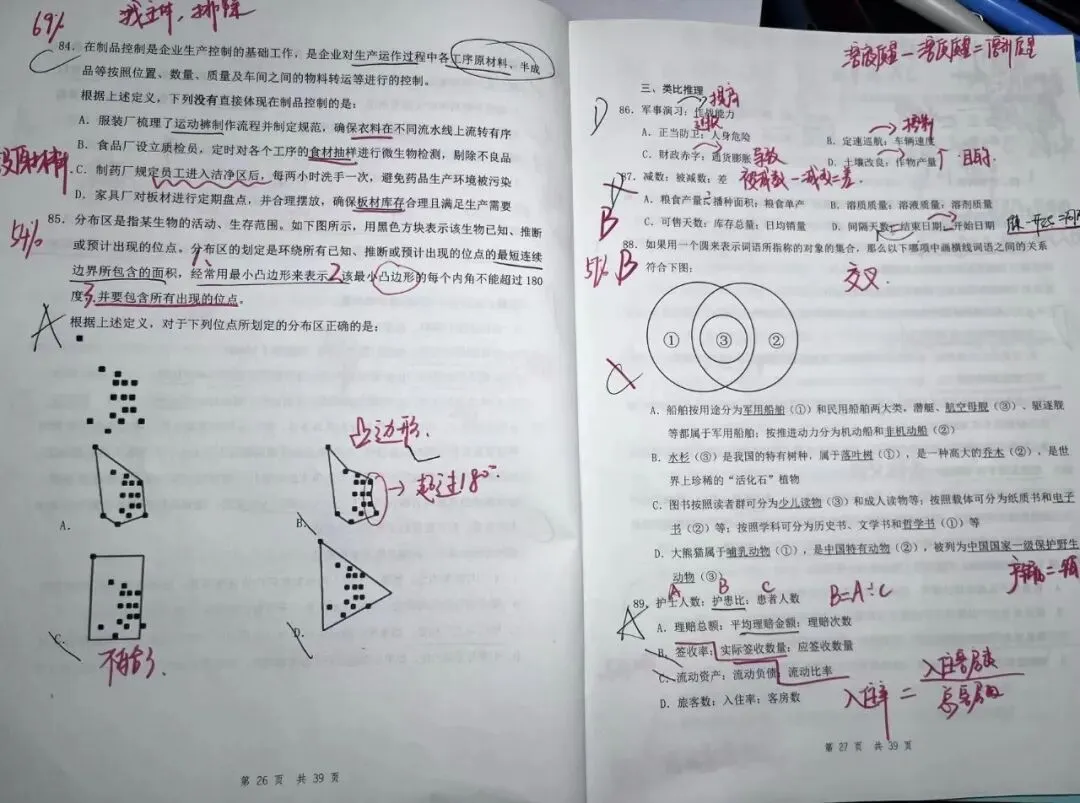 69%
84. 在制品控制是企业生产控制的基础工作，是企业对生产运作过程中各工序原材料、半成
品等按照位置、数量、质量及车间之间的物料转运等进行的控制。
根据上述定义，下列没有直接体现在制品控制的是：
A. 服装厂梳理了运动裤制作流程并制定规范，确保衣料在不同流水线上流转有序
B. 食品厂设立质检员，定时对各个工序的食材抽样进行微生物检测，剔除不良品
C. 制药厂规定员工进入洁净区后，每两小时洗手一次，避免药品生产环境被污染
D. 家具厂对板材进行定期盘点，并合理摆放，确保板材库存合理且满足生产需要
54%
85. 分布区是指某生物的活动、生存范围。如下图所示，用黑色方块表示该生物已知、推断
或预计出现的位点。分布区的划定是环绕所有已知、推断或预计出现的位点的最短连续
边界所包含的面积，经常用最小凸边形来表示，该最小凸边形的每个内角不能超过 180
度，并要包含所有出现的位点。
1
2
3
A
根据上述定义，对于下列位点所划定的分布区正确的是：
凸边形.
超过180°
A.
B.
C.
D.
第 26 页 共 39 页
三、类比推理
D
86. 军事演习：作战能力
提高
A. 正当防卫：人身危险
B. 定速巡航：车辆速度
控制
C. 财政赤字：通货膨胀
导致
D. 土壤改良：作物产量
目的
87. 减数：被减数：差
被减数－减数=差.
B
A. 粮食产量：播种面积：粮食单产
B. 溶质质量：溶液质量：溶剂质量
C. 可售天数：库存总量：日均销量
D. 间隔天数：结束日期：开始日期
88. 如果用一个圆来表示词语所指称的对象的集合，那么以下哪项中画横线词语之间的关系
符合下图：
51%
B
交叉.
①
③
②
A. 船舶按用途分为军用船舶（①）和民用船舶两大类，潜艇、航空母舰（③）、驱逐舰
等都属于军用船舶；按推进动力分为机动船和非机动船（②）
B. 水杉（③）是我国的特有树种，属于落叶树（①），是一种高大的乔木（②），是世
界上珍稀的“活化石”植物
C. 图书按照读者群可分为少儿读物（③）和成人读物等；按照载体可分为纸质书和电子
书（②）等；按照学科可分为历史书、文学书和哲学书（①）等
D. 大熊猫属于哺乳动物（①），是中国特有动物（②），被列为中国国家一级保护野生
动物（③）
A B C B=A÷C
89. 护士人数：护患比：患者人数
A
A. 理赔总额：平均理赔金额：理赔次数
B. 签收率：实际签收数量：应签收数量
C. 流动资产：流动负债：流动比率
D. 旅客数：入住率：客房数
入住率 =
第 27 页 共 39 页